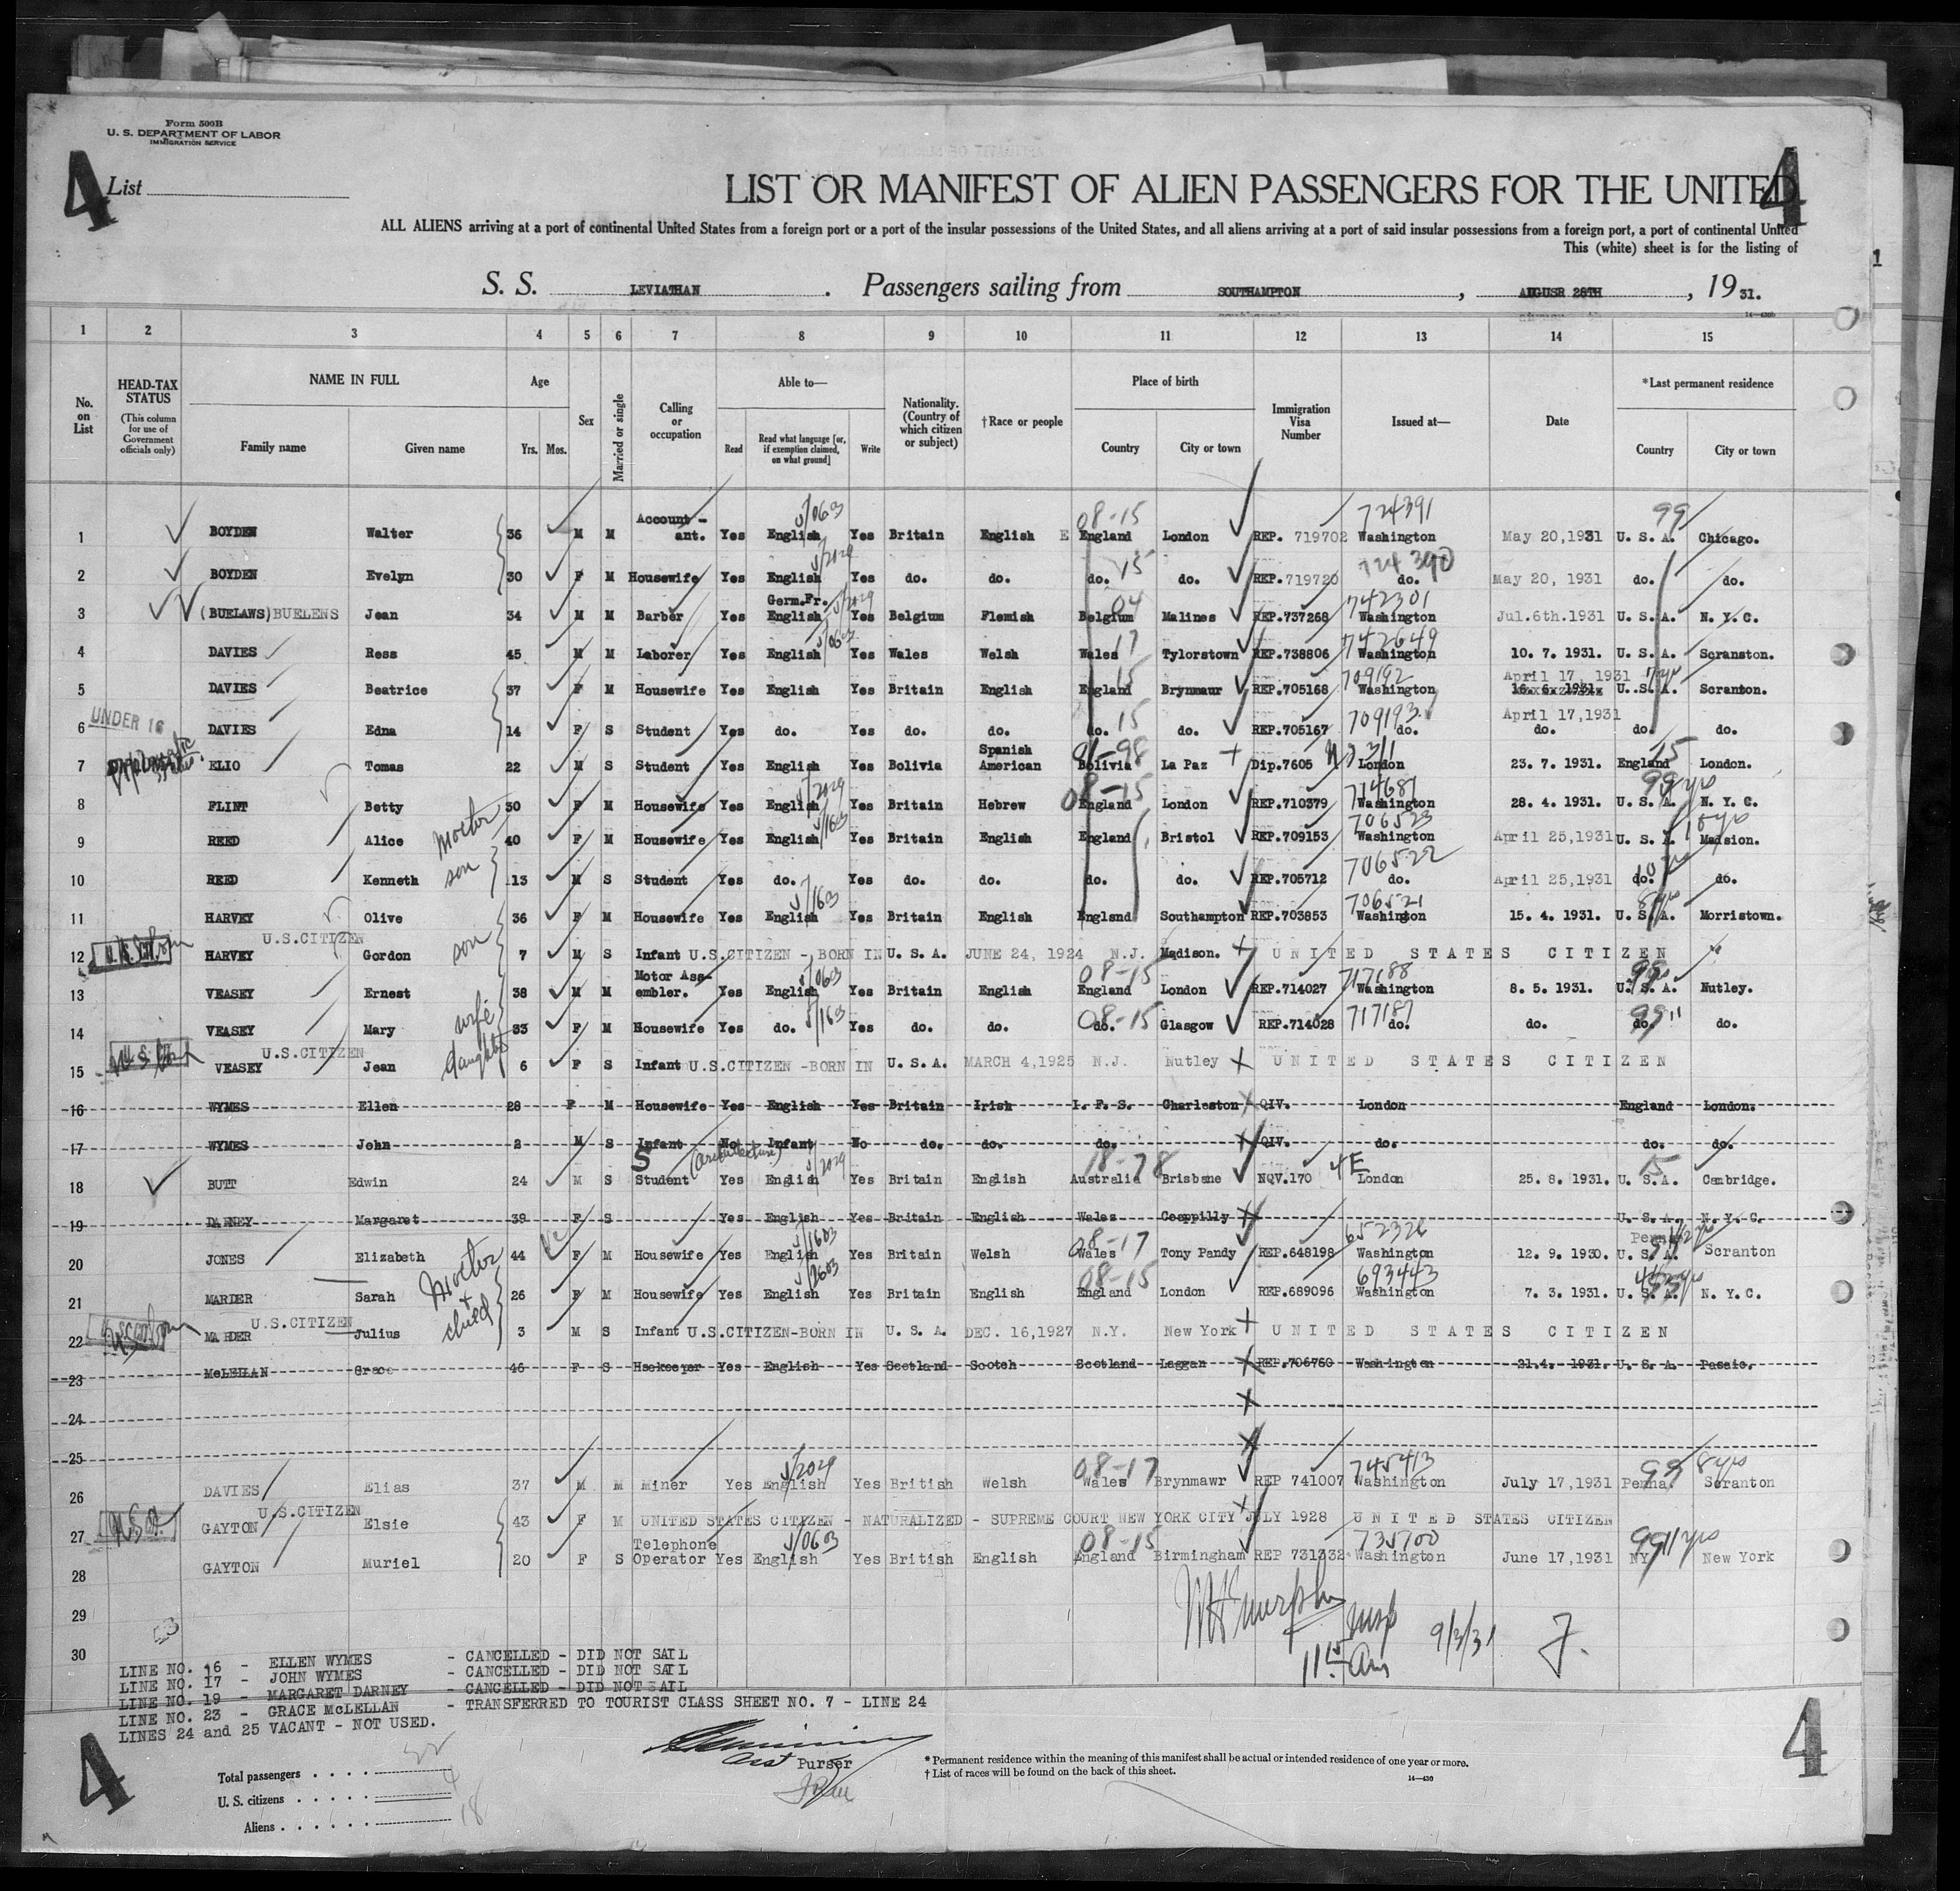 Form 500B
U. S. DEPARTMENT OF LABOR
IMMIGRATION SERVICE
4
4
List
LIST OR MANIFEST OF ALIEN PASSENGERS FOR THE UNITED
ALL ALIENS arriving at a port of continental United States from a foreign port or a port of the insular possessions of the United States, and all aliens arriving at a port of said insular possessions from a foreign port, a port of continental United
This (white) sheet is for the listing of
S. S. LEVIATHAN . Passengers sailing from SOUTHAMPTON , AUGUSR 26TH , 19 31.
1 2 3 4 5 6 7 8 9 10 11 12 13 14 15
No. on List
HEAD-TAX STATUS (This column for use of Government officials only)
NAME IN FULL Family name Given name
Age Yrs. Mos.
Sex
Married or single
Calling or occupation
Able to— Read Read what language [or, if exemption claimed, on what ground] Write
Nationality. (Country of which citizen or subject)
†Race or people
Place of birth Country City or town
Immigration Visa Number
Issued at—
Date
*Last permanent residence Country City or town
1 BOYDEN Walter 36 M M Account-ant. Yes English Yes Britain English E England 08-15 London REP. 719702 724391 Washington May 20,1931 U. S. A. 99 Chicago.
2 BOYDEN Evelyn 30 F M Housewife Yes English Yes do. do. do. 15 do. REP.719720 724390 do. May 20, 1931 do. do.
3 (BUELAWS) BUELENS Jean 34 M M Barber Yes Germ.Fr. English Yes Belgium Flemish Belgium 04 Malines REP.737268 742301 Washington Jul.6th.1931 U. S. A. N. Y. C.
4 DAVIES Ress 45 M M Laborer Yes English Yes Wales Welsh Wales 17 Tylorstown REP.738806 742649 Washington 10. 7. 1931. U. S. A. Scranston.
5 DAVIES Beatrice 37 F M Housewife Yes English Yes Britain English England 15 Brynmaur REP.705168 709192 Washington April 17, 1931 U. S. A. Scranton.
UNDER 16
6 DAVIES Edna 14 F S Student Yes do. Yes do. do. do. 15 do. REP.705167 709193 do. April 17,1931 do. do. do.
7 ELIO Tomas 22 M S Student Yes English Yes Bolivia Spanish American Bolivia 01-98 La Paz Dip.7605 London 23. 7. 1931. England 15 London.
8 FLINT Betty 30 F M Housewife Yes English Yes Britain Hebrew England 08-15 London REP.710379 714687 Washington 28. 4. 1931. U. S. A. 99 N. Y. C.
9 REED Alice 40 F M Housewife Yes English Yes Britain English England Bristol REP.709153 706523 Washington April 25,1931 U. S. A. Madsion.
10 REED Kenneth son 13 M S Student Yes do. Yes do. do. do. do. REP.705712 706522 do. April 25,1931 do. do.
11 HARVEY Olive 36 F M Housewife Yes English Yes Britain English England Southampton REP.703853 706521 Washington 15. 4. 1931. U. S. A. Morristown.
U.S.CITIZEN
12 HARVEY Gordon son 7 M S Infant U.S.CITIZEN - BORN IN U. S. A. JUNE 24, 1924 N.J. Madison. UNITED STATES CITIZEN
13 VEASEY Ernest 38 M M Motor Ass-embler. Yes English Yes Britain English England 08-15 London REP.714027 717188 Washington 8. 5. 1931. U. S. A. Nutley.
14 VEASEY Mary wife 33 F M Housewife Yes do. Yes do. do. do. 08-15 Glasgow REP.714028 717187 do. do. do. do.
U.S.CITIZEN
15 VEASEY Jean daughter 6 F S Infant U.S.CITIZEN -BORN IN U. S. A. MARCH 4,1925 N.J. Nutley UNITED STATES CITIZEN
16 WYMES Ellen 28 F M Housewife Yes English Yes Britain Irish I. F. S. Charleston QIV. London England London.
17 WYMES John 2 M S Infant No Infant No do. do. do. QIV. do. do. do.
18 BUTT Edwin 24 M S Student (architecture) Yes English Yes Britain English Australia 18-78 Brisbane NQV.170 4E London 25. 8. 1931. U. S. A. 15 Cambridge.
19 DARNEY Margaret 39 F S Yes English Yes Britain English Wales Ceappilly U. S. A. N. Y. C.
20 JONES Elizabeth 44 F M Housewife Yes English Yes Britain Welsh Wales 08-17 Tony Pandy REP.648198 652326 Washington 12. 9. 1930. Penna U. S. A. Scranton
21 MARDER Sarah 26 F M Housewife Yes English Yes Britain English England 08-15 London REP.689096 693443 Washington 7. 3. 1931. U. S. A. N. Y. C.
U.S.CITIZEN
22 MARDER Julius child 3 M S Infant U.S.CITIZEN-BORN IN U. S. A. DEC. 16,1927 N.Y. New York UNITED STATES CITIZEN
23 McLELLAN Grace 46 F S Hsekeeper Yes English Yes Scotland Scotch Scotland Laggan REP.706760 Washington 21.4. 1931. U. S. A. Passic.
24
25
26 DAVIES Elias 37 M M Miner Yes English Yes British Welsh Wales 08-17 Brynmawr REP 741007 745413 Washington July 17,1931 Penna 99 8 yrs Scranton
U.S.CITIZEN
27 GAYTON Elsie 43 F M UNITED STATES CITIZEN - NATURALIZED - SUPREME COURT NEW YORK CITY JULY 1928 UNITED STATES CITIZEN
28 GAYTON Muriel 20 F S Telephone Operator Yes English Yes British English England 08-15 Birmingham REP 731332 735700 Washington June 17,1931 NY 99 11 yrs New York
29
30
Insp 9/3/31
LINE NO. 16 - ELLEN WYMES - CANCELLED - DID NOT SAIL
LINE NO. 17 - JOHN WYMES - CANCELLED - DID NOT SAIL
LINE NO. 19 - MARGARET DARNEY - CANCELLED - DID NOT SAIL
LINE NO. 23 - GRACE McLELLAN - TRANSFERRED TO TOURIST CLASS SHEET NO. 7 - LINE 24
LINES 24 and 25 VACANT - NOT USED.
Purser
Total passengers . . . . 22
U. S. citizens . . . . . 4
Aliens . . . . . . 18
* Permanent residence within the meaning of this manifest shall be actual or intended residence of one year or more.
† List of races will be found on the back of this sheet.
14—430
4
4